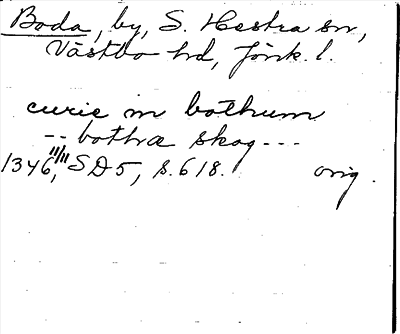 Boda, by, S. Hestra sn,
Västbo hd, Jönk. l.
curie in bothum
-- bothæ skog ---
1346 11/11, SD 5, s. 618. orig.